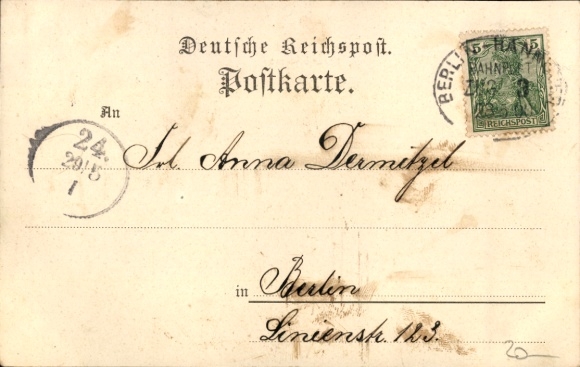 Deutsche Reichspost.
Postkarte.
5 5
REICHSPOST
BERLIN - HANN
BAHNPOST
An
24.
29/5
1
Frl. Anna Dermitzel
in Berlin
Linienstr. 123.
20